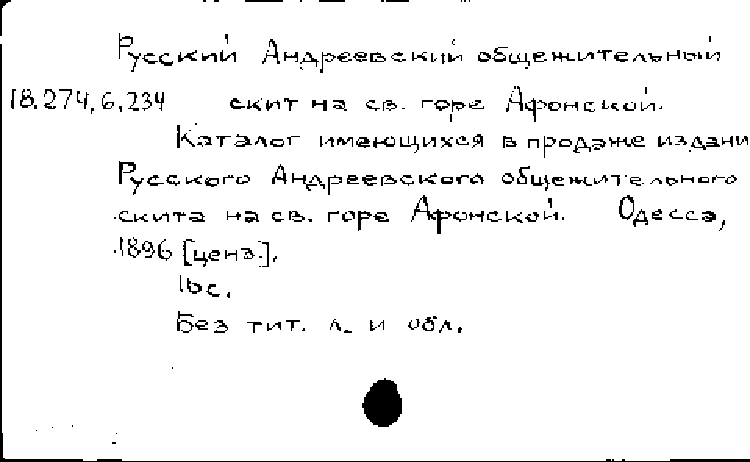 Русский Андреевский общежительный
18.274.6.234 скит на св. горе Афонской.
Каталог имеющихся в продаже издани
Русского Андреевского общежительного
скита на св. горе Афонской. Одесса,
1896 [ценз.].
16 с.
Без тит. л. и обл.